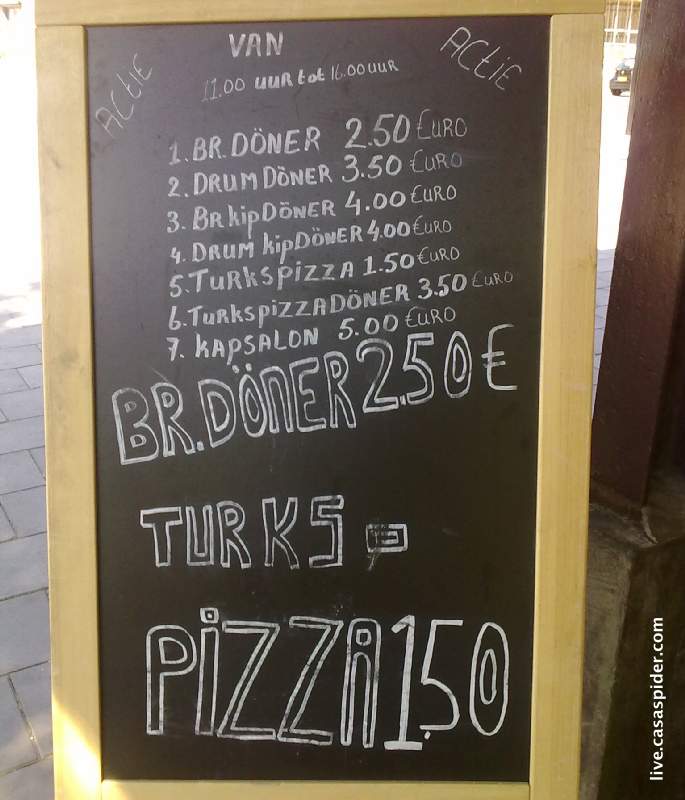 ACtiE VAN ACtiE
11.00 uur tot 16.00 uur
1. BR. DÖNER 2.50 €URO
2. DRUM DÖNER 3.50 €URO
3. BR kip DÖNER 4.00 €URO
4. DRUM kip DÖNER 4.00 €URO
5. TURKSPiZZA 1.50 €URO
6. TurkspizzADÖNER 3.50 €URO
7. KAPSALON 5.00 €URO
BR. DÖNER 2.50 €
TURKS =
PiZZA 1,50
live.casaspider.com